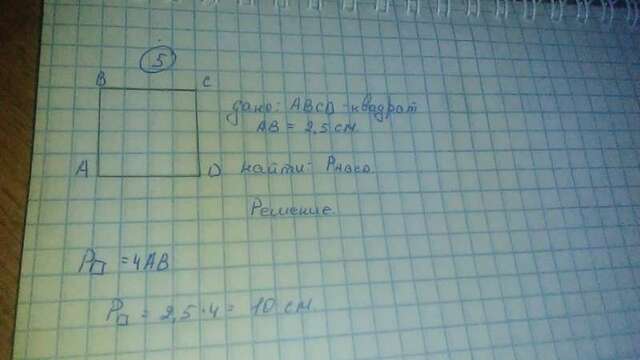 5
B C
дано: ABCD - квадрат
AB = 2,5 см
A D найти: PABCD
Решение
P□ = 4AB
P□ = 2,5 · 4 = 10 см